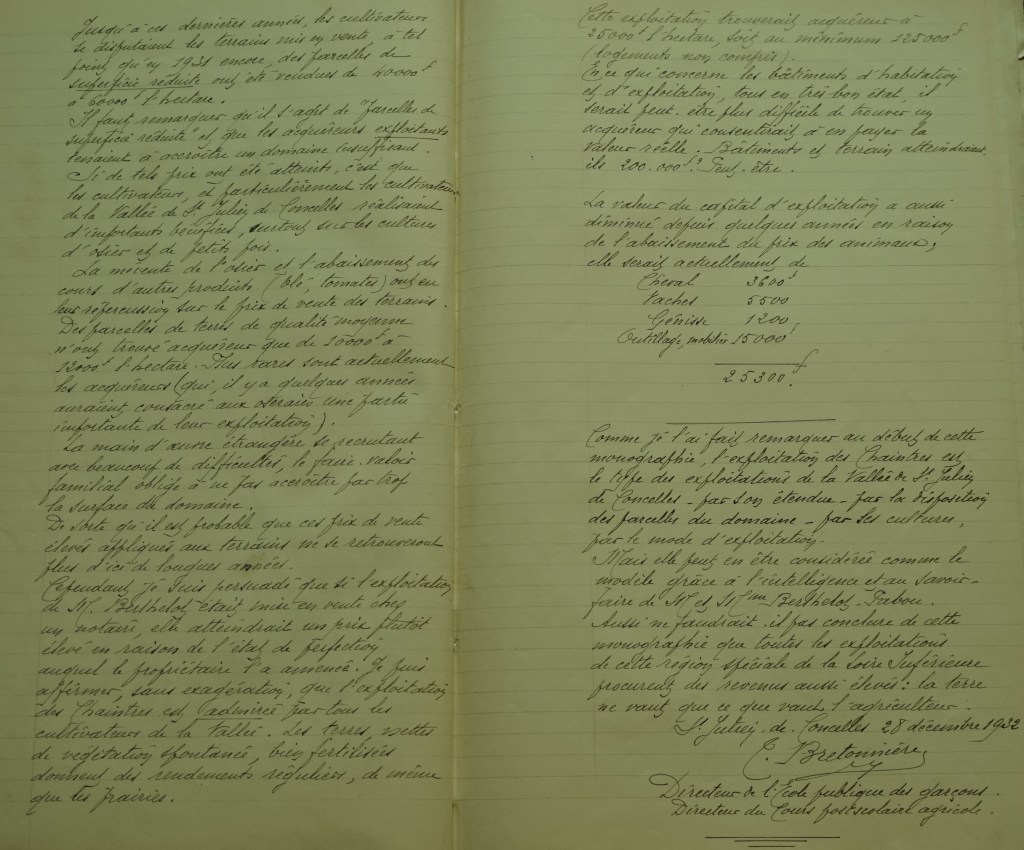 Jusqu'à ces dernières années, les cultivateurs
se disputaient les terrains mis en vente à tel
point qu'en 1931 encore, des parcelles de
superficie réduite ont été vendues de 40000f
à 60000f l'hectare.
Il faut remarquer qu'il s'agit de "parcelles de
superficie réduite" et que les acquéreurs exploitants
tenaient à accroître un domaine insuffisant.
Si de tels prix ont été atteints, c'est que
les cultivateurs, et particulièrement les cultivateurs
de la Vallée de St Julien de Concelles réalisaient
d'importants bénéfices, surtout sur les cultures
d'osier et de petits pois.
La mévente de l'osier et l'abaissement des
cours d'autres produits (blé, tomates) ont eu
leur répercussion sur le prix de vente des terrains.
Des parcelles de terres de qualité moyenne
n'ont trouvé acquéreur que de 10000f à
12000f l'hectare. Plus rares sont actuellement
les acquéreurs (qui, il y a quelques années
auraient consacré aux oseraies une partie
importante de leur exploitation).
La main d'œuvre étrangère se recrutant
avec beaucoup de difficultés, le faire-valoir
familial oblige à ne pas accroître par trop
la surface du domaine.
De sorte qu'il est probable que ces prix de vente
élevés appliqués aux terrains ne se retrouveront
plus d'ici de longues années.
Cependant je suis persuadé que si l'exploitation
de M. Berthelot était mise en vente chez
un notaire, elle atteindrait un prix plutôt
élevé en raison de l'état de perfection
auquel le propriétaire l'a amenée. Je puis
affirmer, sans exagération, que l'exploitation
des Chaintres est admirée par tous les
cultivateurs de la Vallée. Les terres, nettes
de végétation spontanée, bien fertilisées
donnent des rendements réguliers, de même
que les prairies.
Cette exploitation trouverait acquéreur à
25000f l'hectare, soit au minimum 125000f
(logements non compris).
En ce qui concerne les bâtiments d'habitation
et d'exploitation, tous en très bon état, il
serait peut-être plus difficile de trouver un
acquéreur qui consentirait à en payer la
valeur réelle. Bâtiments et terrain atteindraient-
ils 200.000f? Peut-être.
La valeur du capital d'exploitation a aussi
diminué depuis quelques années en raison
de l'abaissement du prix des animaux;
elle serait actuellement de
Cheval 3600f
Vaches 5500
Génisse 1200
Outillage, mobilier 15000f
25300f.
Comme je l'ai fait remarquer au début de cette
monographie, l'exploitation des Chaintres est
le type des exploitations de la Vallée de St Julien
de Concelles - par son étendue - par la disposition
des parcelles du domaine - par ses cultures,
par le mode d'exploitation.
Mais elle peut en être considérée comme le
modèle grâce à l'intelligence et au savoir-
faire de M et Mme Berthelot-Pabou.
Aussi ne faudrait-il pas conclure de cette
monographie que toutes les exploitations
de cette région spéciale de la Loire Inférieure
procurent des revenus aussi élevés: la terre
ne vaut que ce que vaut l'agriculteur.
St Julien-de-Concelles 28 décembre 1932
C. Bretonnière
Directeur de l'École publique des garçons.
Directeur du Cours postscolaire agricole.